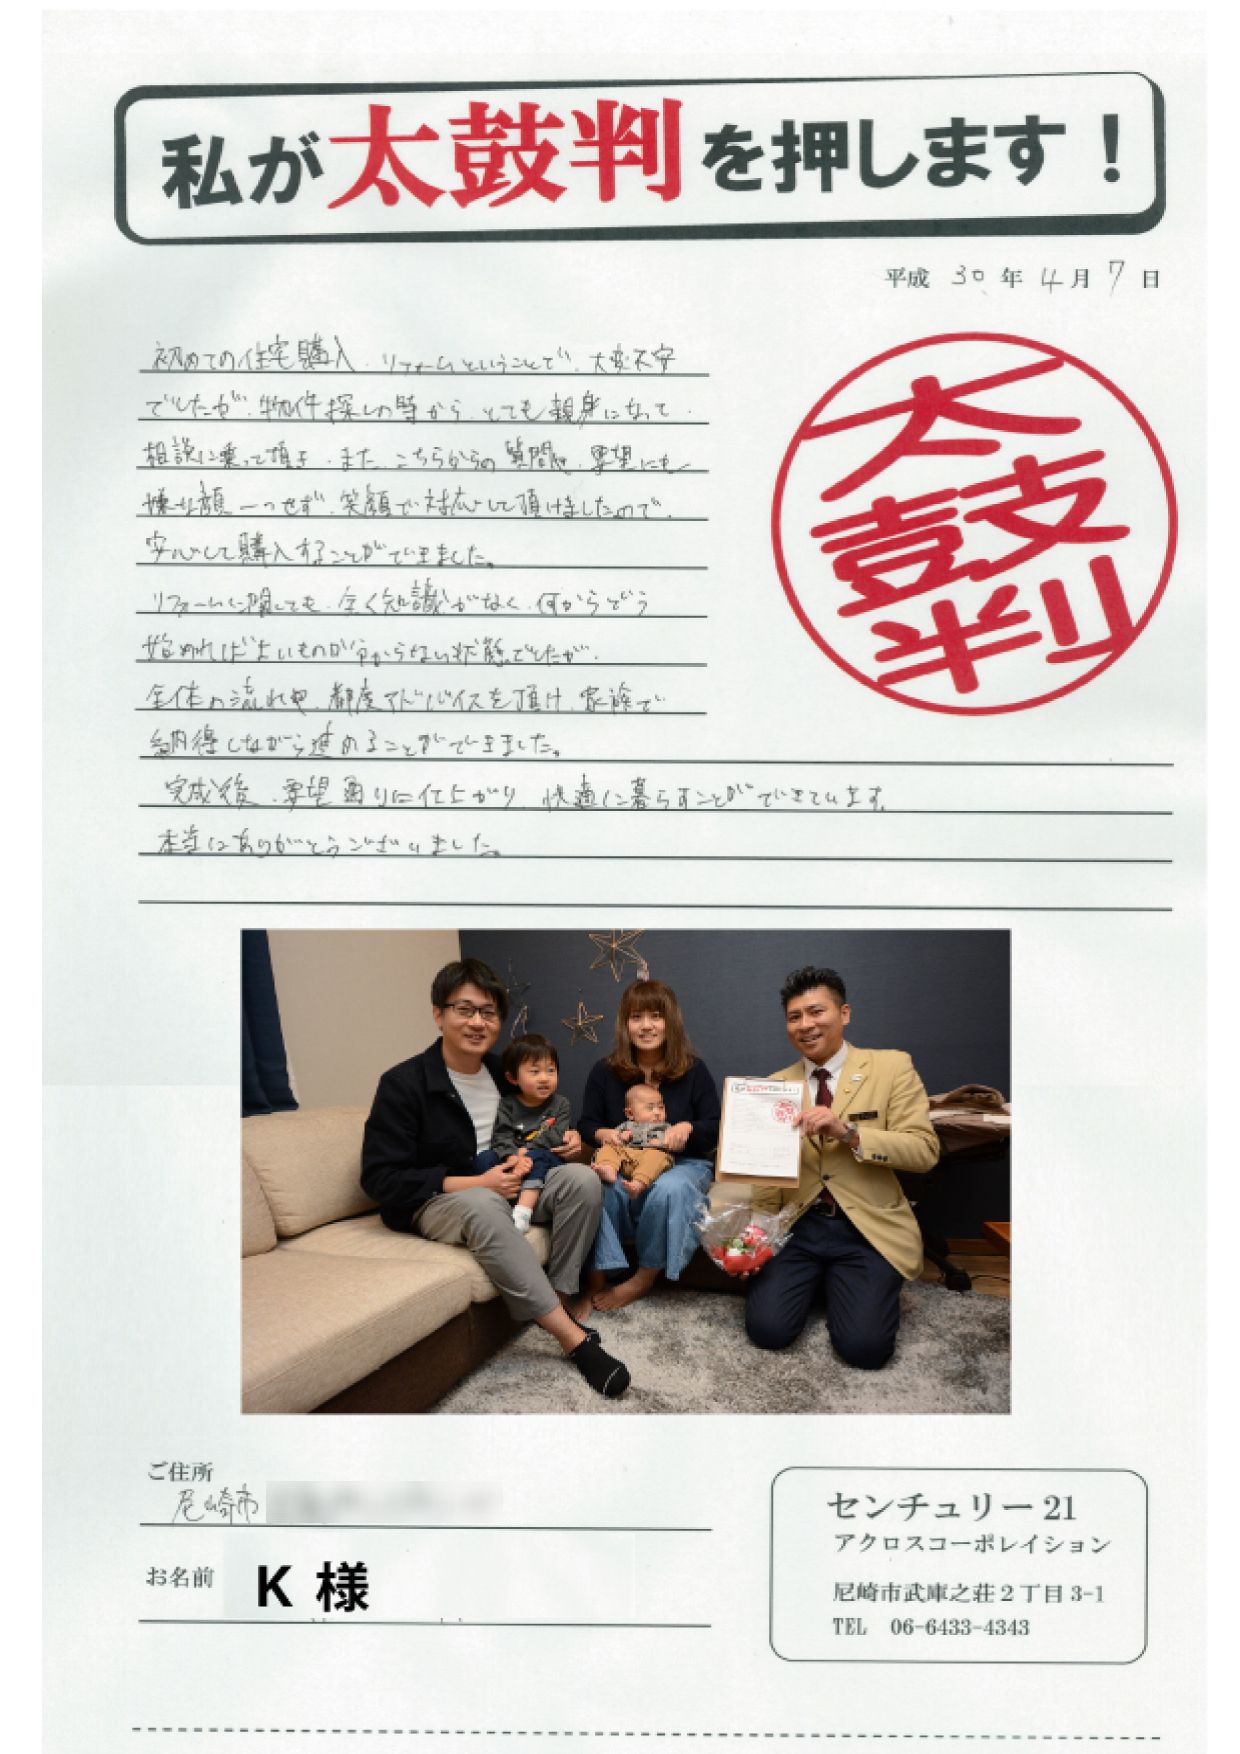 私が太鼓判を押します！
平成 30年 4月 7日
初めての住宅購入、リフォームということで、大変不安
でしたが、物件探しの時から、とても親身になって
相談に乗って頂き、また、こちらからの質問や、要望にも
嫌な顔一つせず、笑顔で対応して頂けましたので、
安心して購入することができました。
リフォームに関しても、全く知識がなく、何からどう
始めればよいものか分からない状態でしたが、
全体の流れや、都度アドバイスを頂け、家族で
納得しながら進めることができました。
完成後、要望通りに仕上がり、快適に暮らすことができています。
本当にありがとうございました。
太鼓判
ご住所
尼崎市
お名前 K 様
センチュリー21
アクロスコーポレイション
尼崎市武庫之荘2丁目3-1
TEL 06-6433-4343